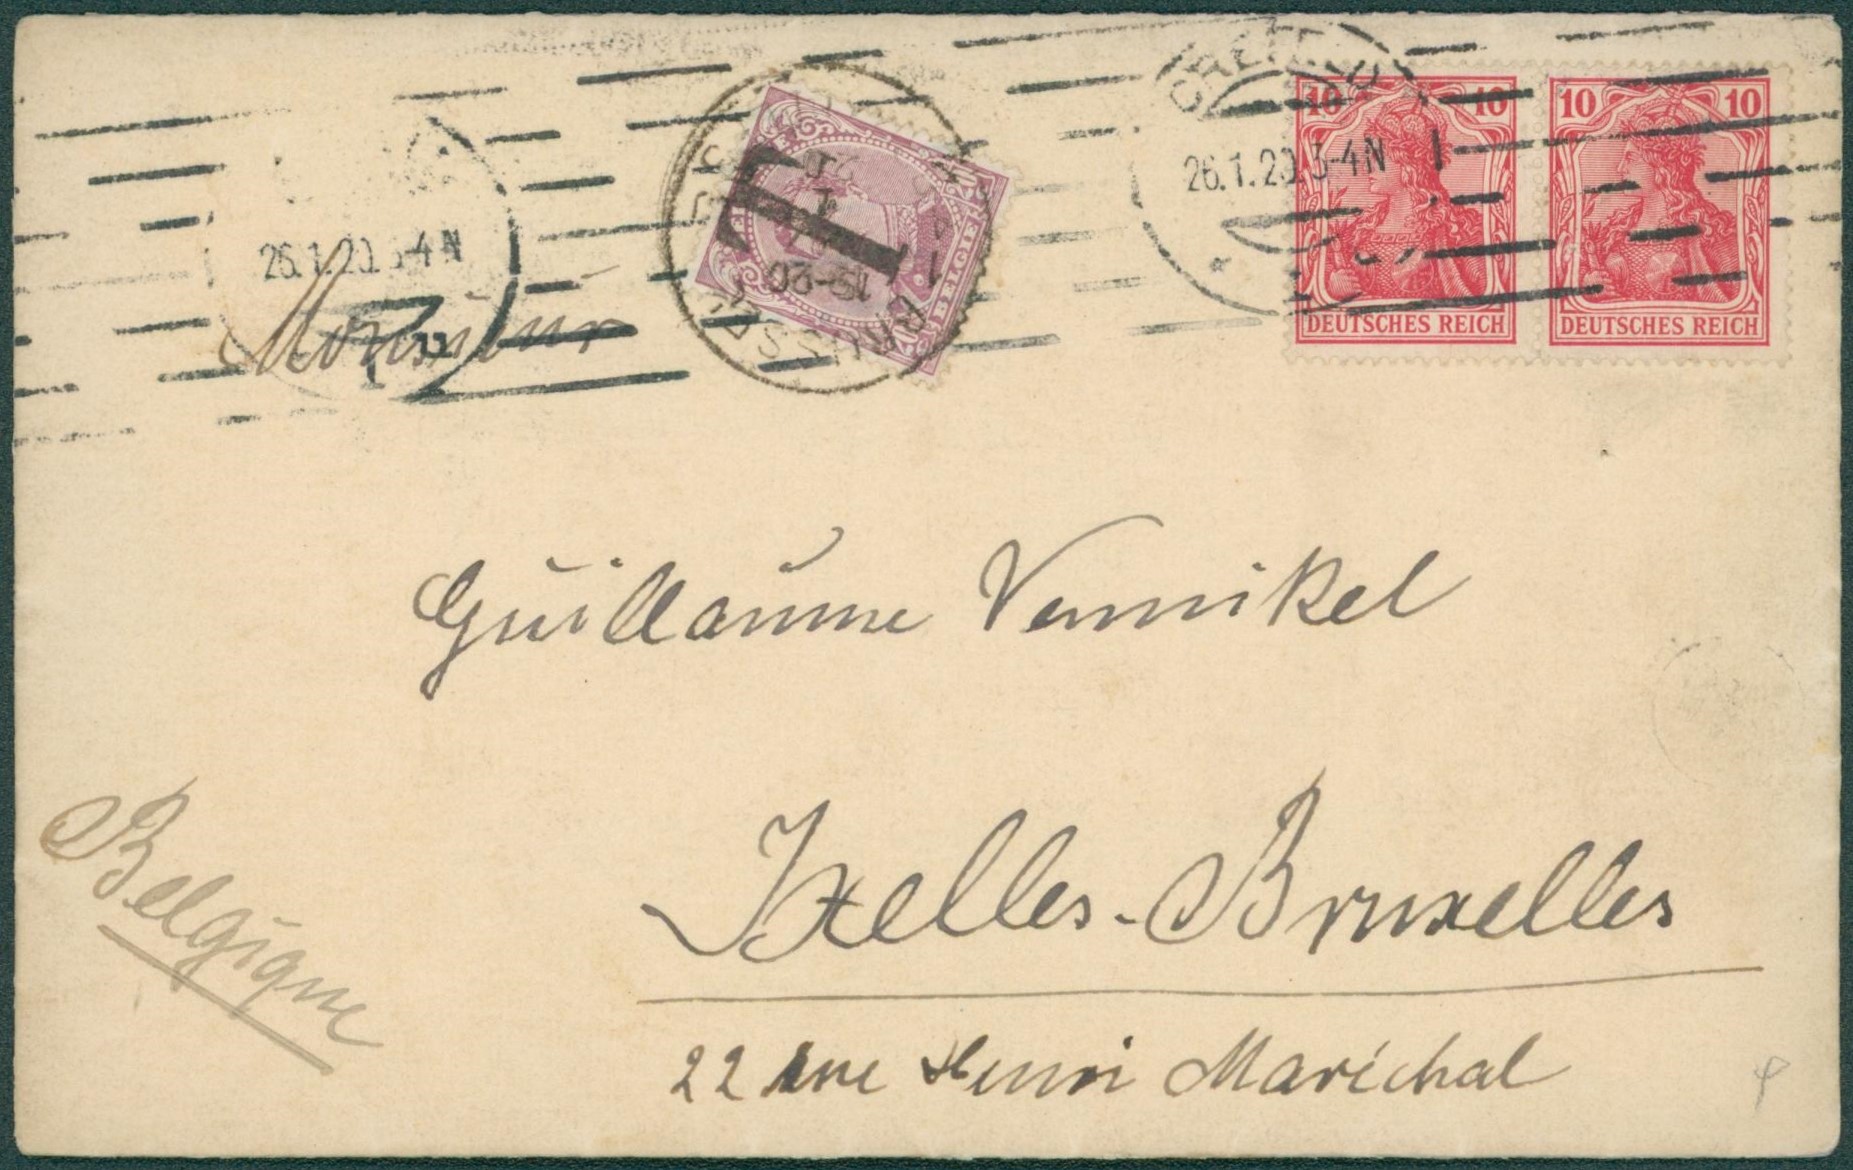 CREFELD
10 10
10 10
26.1.20. 3-4 N
26.1.20. 3-4 N
DEUTSCHES REICH
DEUTSCHES REICH
T
BELGIE
19-20
Monsieur
Guillaume Vennikel
Ixelles-Bruxelles
Belgique
22 rue Henri Maréchal